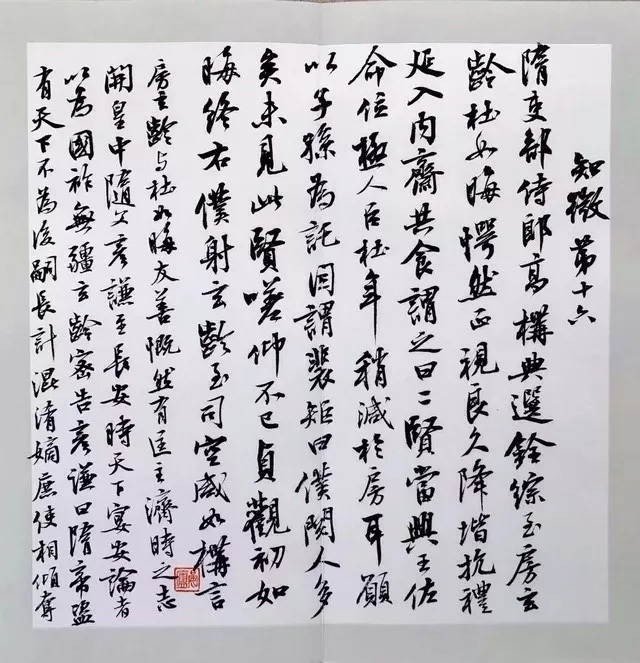 知微第十六
隋吏部侍郎高構典選銓綜至房玄
齡杜如晦愕然正視良久降堦抗禮
延入内齋共食謂之曰二賢當興王佐
命位極人臣杜年稍減於房耳願
以子孫為託因謂裴矩曰僕閱人多
矣未見此賢嗟仰不已貞觀初如
晦終右僕射玄齡至司空咸如構言
房玄齡与杜如晦友善慨然有匡主濟時之志
開皇中隨父彦謙至長安時天下宴安論者
以為國祚無疆玄齡密告彦謙曰隋帝盜
有天下不為後嗣長計混淆嫡庶使相傾奪